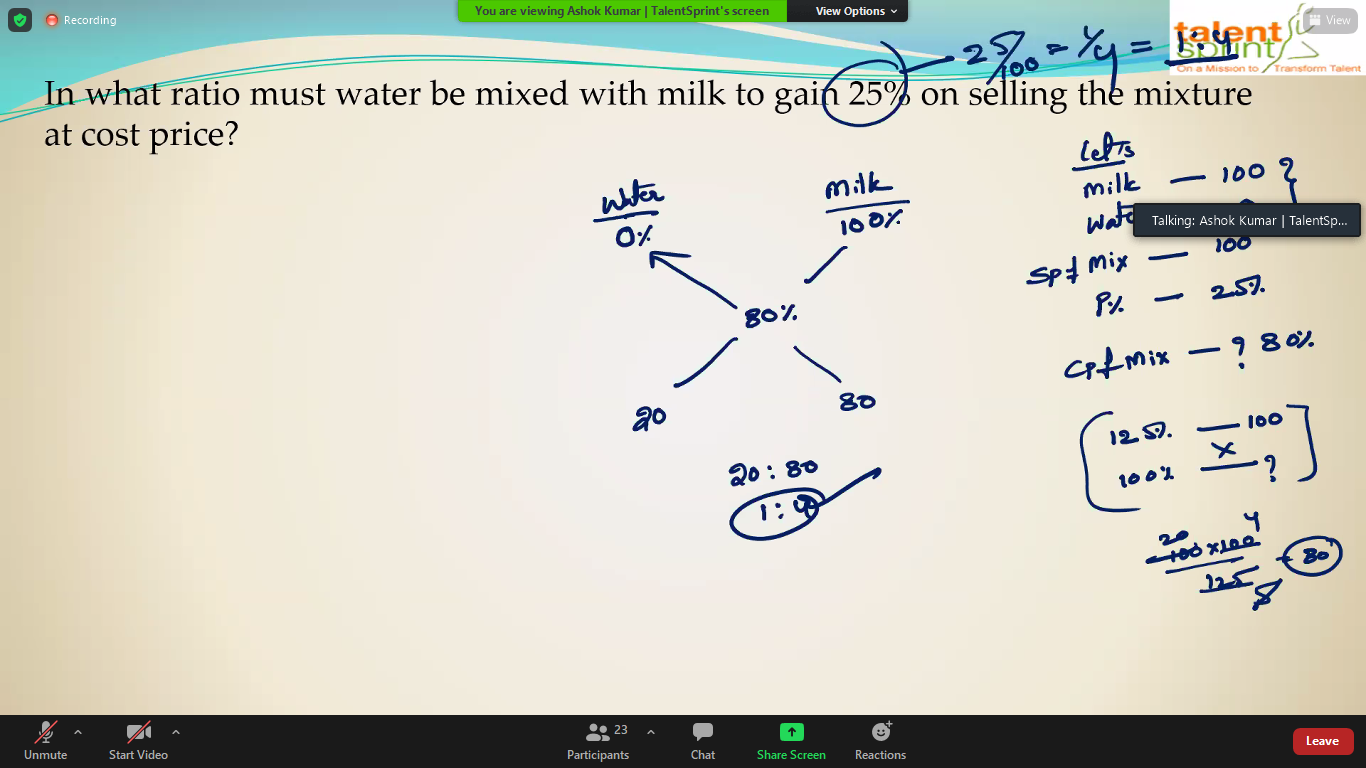 Recording
You are viewing Ashok Kumar | TalentSprint's screen
View Options
View
talent
Sprint
On a Mission to Transform Talent
25/100 = 1/4 = 1:4
In what ratio must water be mixed with milk to gain 25% on selling the mixture
at cost price?
Let's
milk — 100
Wate
Talking: Ashok Kumar | TalentSp...
Sp of Mix — 100
P% — 25%
Cp of Mix — ? 80%
125% — 100
X
100% — ?
20 4
100 x 100
125
5
= 80
Water
0%
Milk
100%
80%
20
80
20 : 80
1 : 4
Unmute
Start Video
Participants
23
Chat
Share Screen
Reactions
Leave